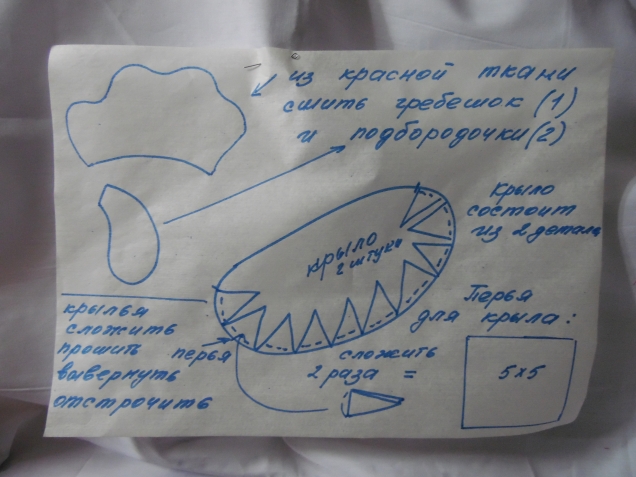 из красной ткани
сшить гребешок (1)
и подбородочки (2)
крыло
состоит
из 2 деталь
крыло
2 штуки
Перья
для крыла:
5x5
крылья
сложить
прошить
вывернуть
отстрочить
перья
сложить
2 раза =